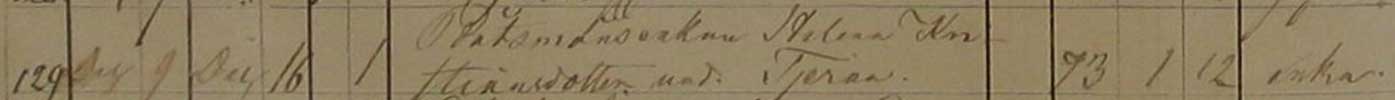 Båtsmansenkan Helena Kri-
129 Dec 9 Dec 16 1 stiansdotter und. Tjeran. 73 1 12 enka.